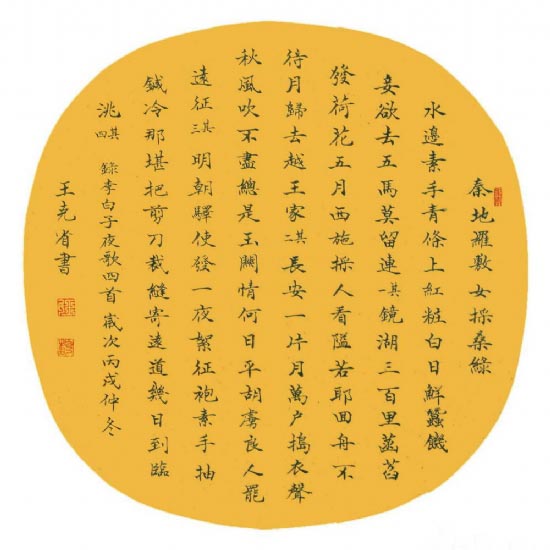 秦地羅敷女採桑綠
水邊素手青條上紅粧白日鮮蠶饑
妾欲去五馬莫留連其一鏡湖三百里菡萏
發荷花五月西施採人看隘若耶回舟不
待月歸去越王家其二長安一片月萬戶搗衣聲
秋風吹不盡總是玉關情何日平胡虜良人罷
遠征其三明朝驛使發一夜絮征袍素手抽
鍼冷那堪把剪刀裁縫寄遠道幾日到臨
洮其四 錄李白子夜歌四首 歲次丙戌仲冬
王堯省書